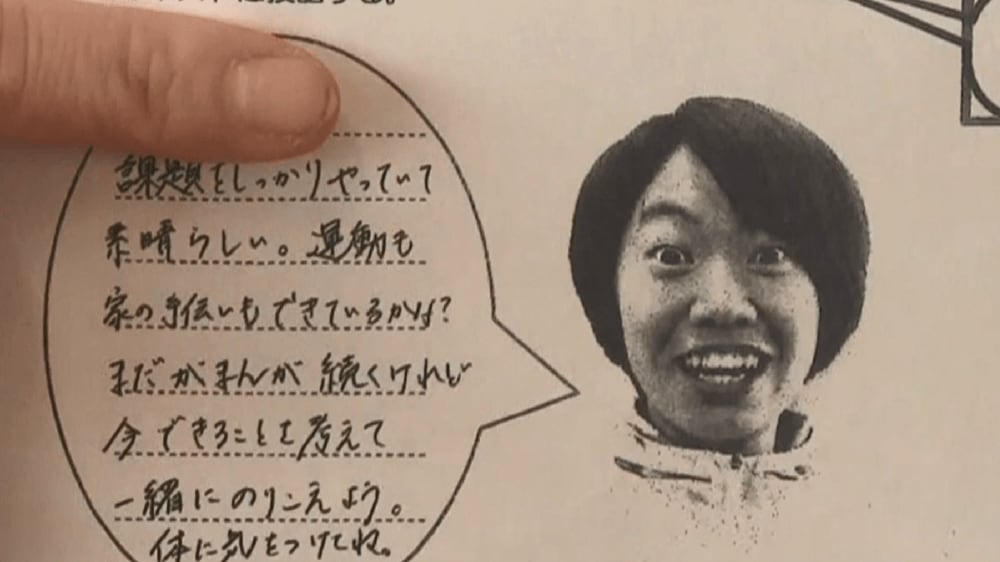 課題をしっかりやっていて
素晴らしい。運動も
家の手伝いもできているかな?
まだがまんが続くけれど
今できることを考えて
一緒にのりこえよう。
体に気をつけてね。